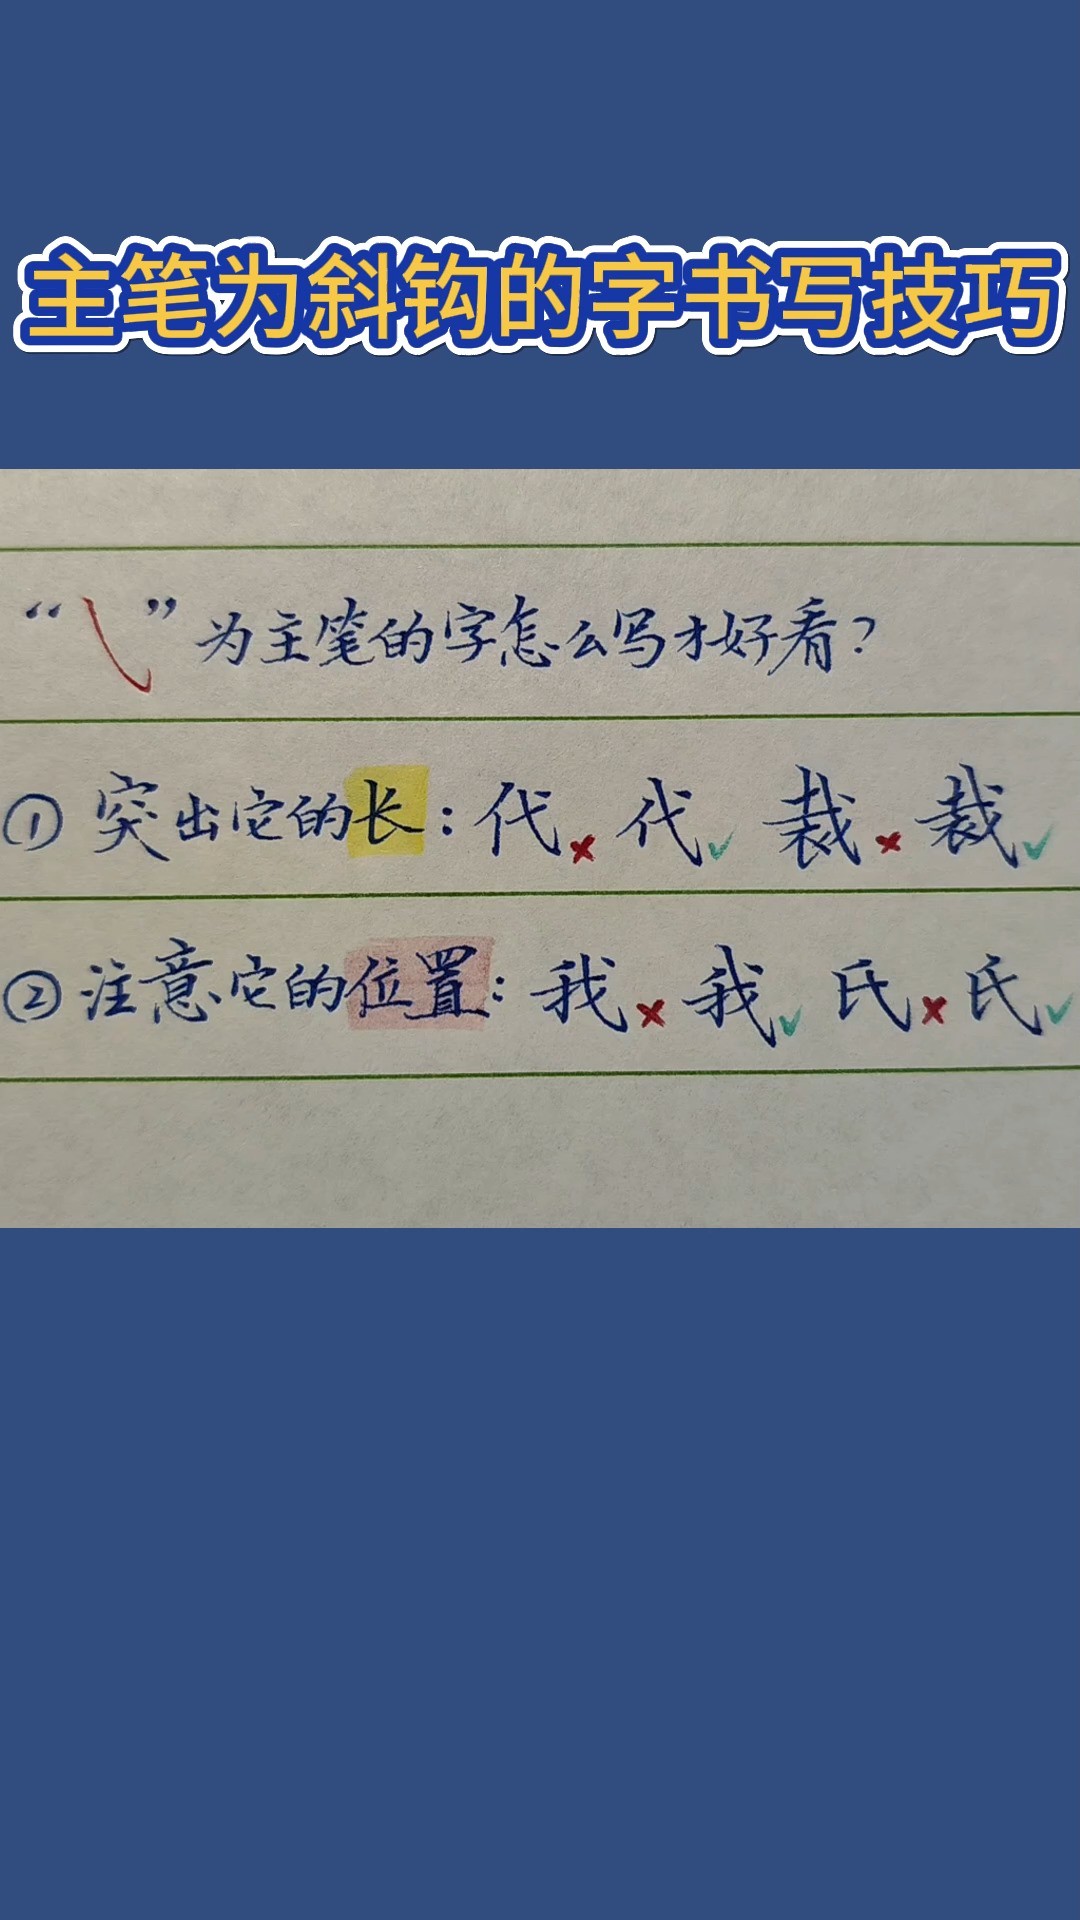 主笔为斜钩的字书写技巧
“㇂”为主笔的字怎么写才好看？
① 突出它的长：代× 代✓ 裁× 裁✓
② 注意它的位置：我× 我✓ 氏× 氏✓